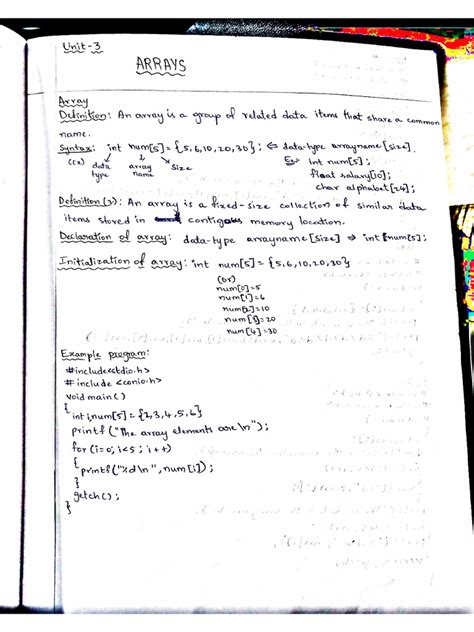 Unit-3
ARRAYS
Array
Definition: An array is a group of related data items that share a common
name.
Syntax: int num[5] = {5,6,10,20,30}; ⇐ data-type arrayname[size].
(Ex) data type array name size Ex: int num[5];
float salary[10];
char alphabet[26];
Definition(2): An array is a fixed-size collection of similar data
items stored in contigous memory location.
Declaration of array: data-type arrayname[size] ⇒ int num[5];
Initialization of array: int num[5] = {5,6,10,20,30}
(or)
num[0]=5
num[1]=6
num[2]=10
num[3]=20
num[4]=30
Example program:
#include<stdio.h>
#include <conio.h>
void main()
{ int i,num[5] = {2,3,4,5,6}
printf("The array elements are \n");
for (i=0; i<5; i++)
{
printf("%d\n", num[i]);
}
getch();
}